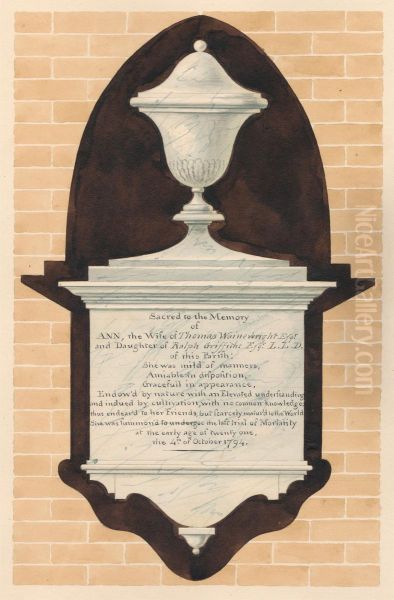 Sacred to the Memory
of
ANN, the Wife of Thomas Wainewright Esqr.
and Daughter of Ralph Griffiths Esqr. L.L.D.
of this Parish;
She was mild of manners,
Amiable in disposition,
Gracefull in appearance,
Endow'd by nature with an Elevated understanding
and indued by cultivation, with no common knowledge;
thus endear'd to her Friends, but scarcely matur'd to the World
She was summon'd to undergoe the last trial of Mortality
at the early age of twenty one,
the 4th. of October 1794.
NiceArtGallery.com